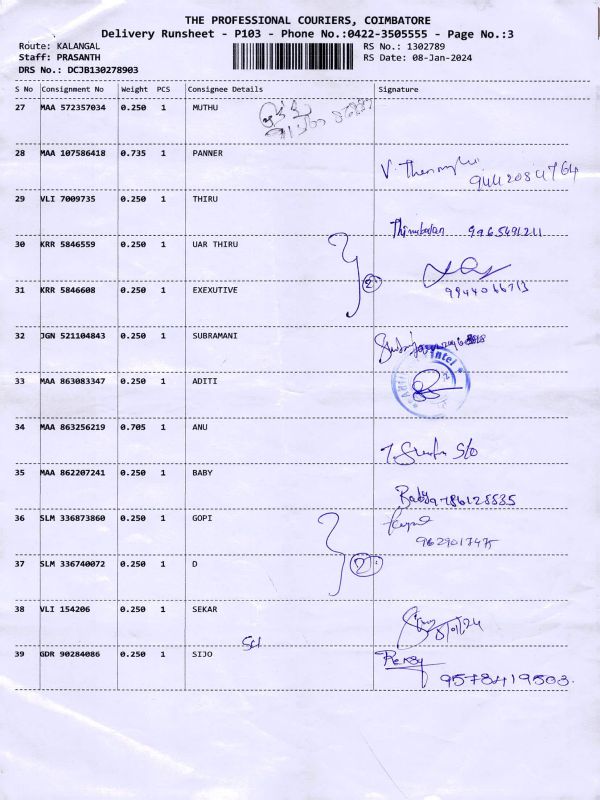 THE PROFESSIONAL COURIERS, COIMBATORE
Delivery Runsheet - P103 - Phone No.:0422-3505555 - Page No.:3
Route: KALANGAL
RS No.: 1302789
Staff: PRASANTH
RS Date: 08-Jan-2024
DRS No.: DCJB130278903
S No Consignment No Weight PCS Consignee Details Signature
27 MAA 572357034 0.250 1 MUTHU
28 MAA 107586418 0.735 1 PANNER
29 VLI 7009735 0.250 1 THIRU
9965491211
30 KRR 5846559 0.250 1 UAR THIRU
2
31 KRR 5846608 0.250 1 EXEXUTIVE
32 JGN 521104843 0.250 1 SUBRAMANI
33 MAA 863083347 0.250 1 ADITI
34 MAA 863256219 0.705 1 ANU
S/o
35 MAA 862207241 0.250 1 BABY
Baby 9786125535
36 SLM 336873860 0.250 1 GOPI
9629017475
37 SLM 336740072 0.250 1 D
2
38 VLI 154206 0.250 1 SEKAR
8/01/24
39 GDR 90284086 0.250 1 SIJO
9578419503.